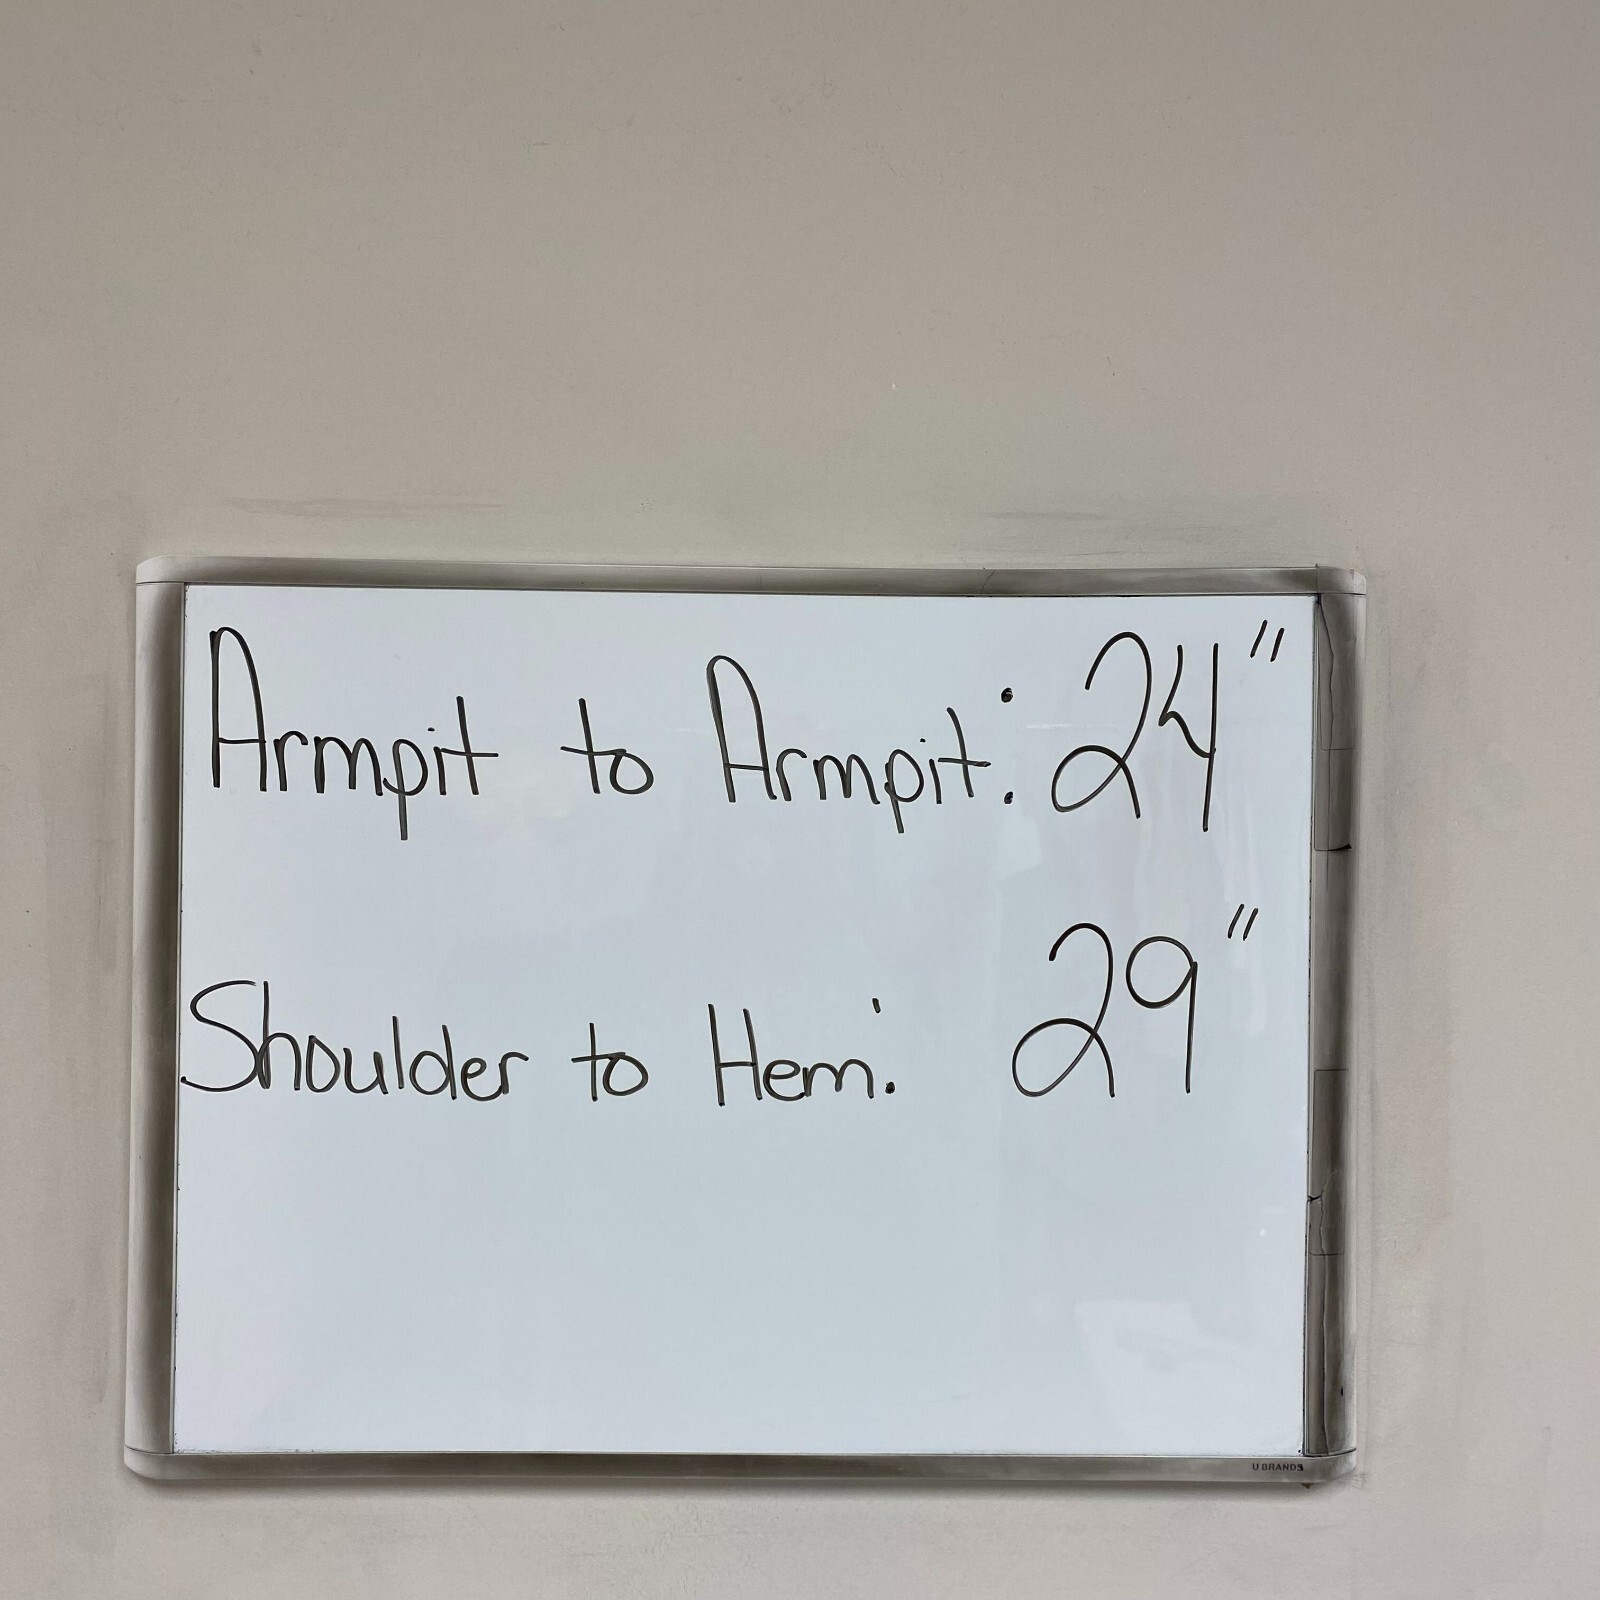 Armpit to Armpit: 24"
Shoulder to Hem: 29"
U BRANDS